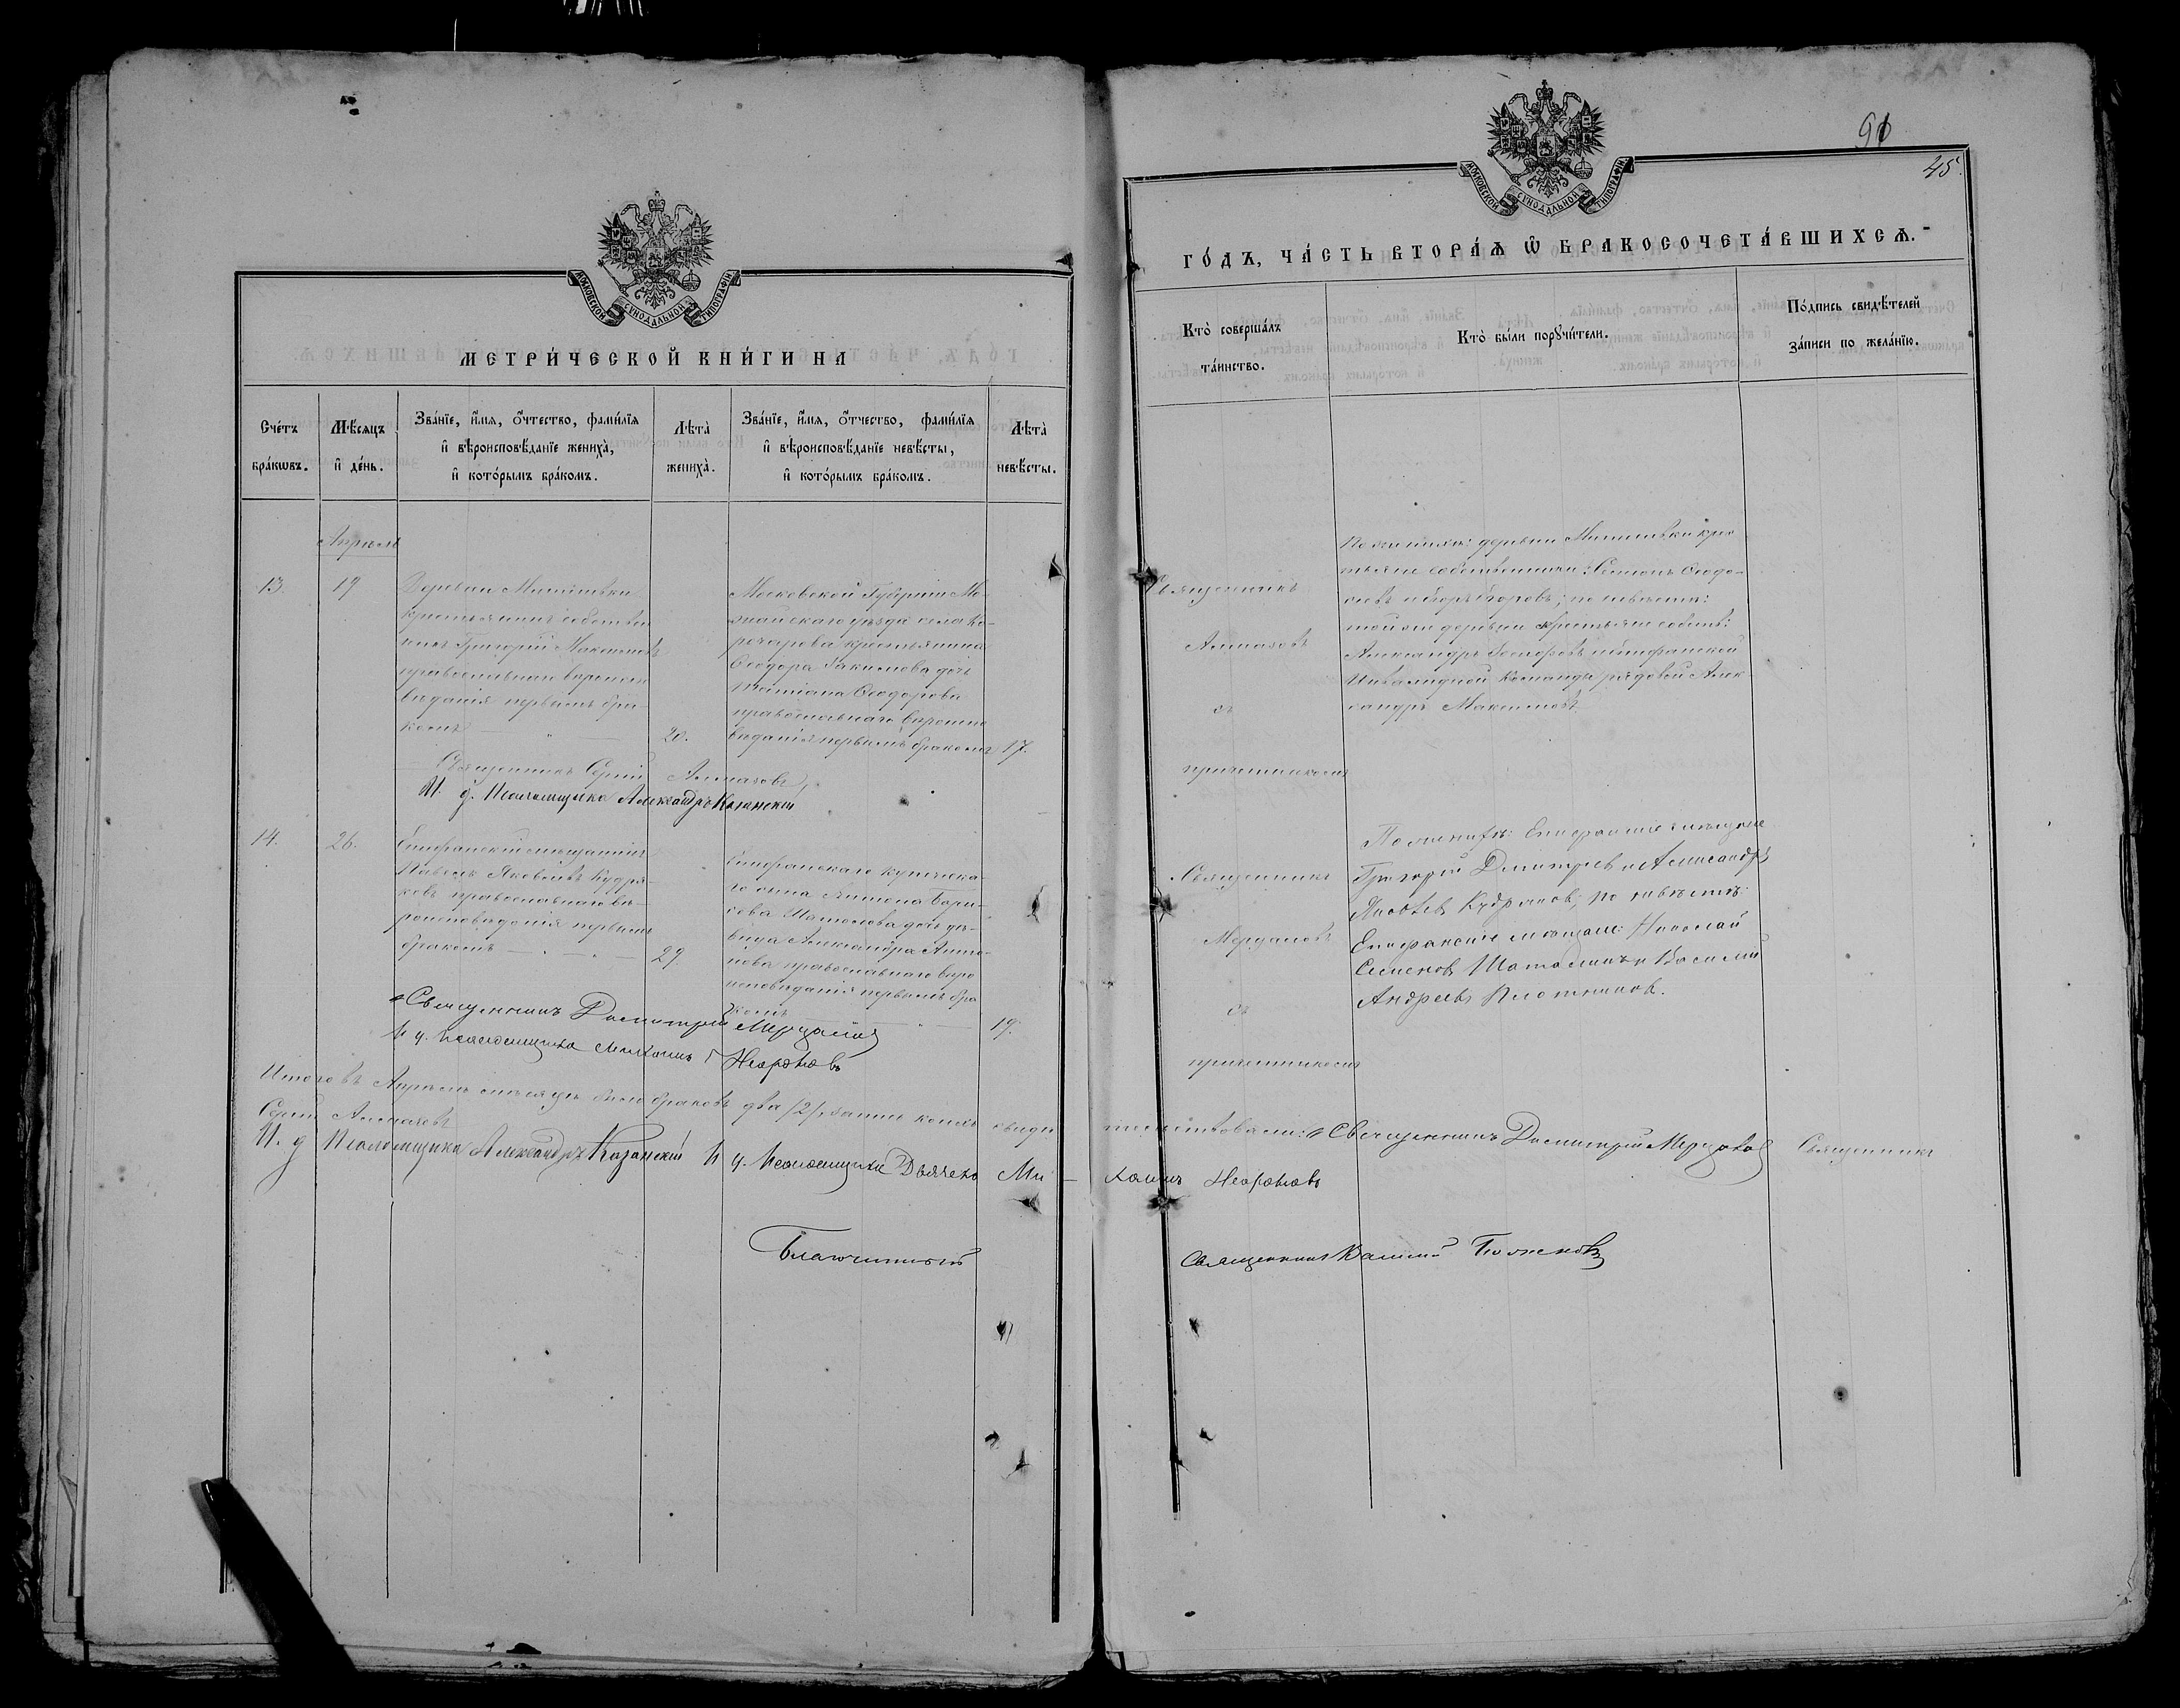 МОСКОВСКОЙ СѴНОДАЛЬНОЙ ТИПОГРАФІИ
МЕТРИ́ЧЕСКОЙ КНИ́ГИ НА
Сче́тъ бра́кѡвъ.
Мѣ́сяцъ и҆ де́нь.
Зва́нїе, и҆́мя, ѻ҆́тчество, фами́лїя
и҆ вѣроисповѣ́данїе жениха̀,
и҆ кото́рымъ бра́комъ.
Лѣта̀ жениха̀.
Зва́нїе, и҆́мя, ѻ҆́тчество, фами́лїя
и҆ вѣроисповѣ́данїе невѣ́сты,
и҆ кото́рымъ бра́комъ.
Лѣта̀ невѣ́сты.
Апрѣль
13.
19
Деревни
крестьянинъ собствен
никъ Григорій Максимовъ
православнаго вѣроиспо
вѣданія первымъ бра-
комъ
20.
Московской Губерніи Мо-
жайскаго уѣзда села Ко-
рочарова крестьянина
Ѳеодора Іакимова дочь
Татіана Ѳеодорова
православнаго вѣроиспо
вѣданія первымъ бракомъ
17.
Священникъ Сергій Алмазовъ,
И. д. Псаломщика Александръ Казанскій
14.
26.
Епифанскій мѣщанинъ
Павелъ Яковлевъ Кудря-
ковъ православнаго вѣ-
роисповѣданія первымъ
бракомъ
29
Епифанскаго купческа-
го сына Антона Бори-
сова Шатолова дочь дѣ-
вица Александра Анто-
нова православнаго вѣро
исповѣданія первымъ бра
комъ
19.
Священникъ Димитрій Мерцаловъ
И д. Псаломщика Михаилъ Неароновъ
Итого въ Апрѣлѣ мѣсяцѣ было браковъ два /2/, запись коихъ свиди
Сергій Алмазовъ
И. д Псаломщика Александръ Казанскій И д. Псаломщика Дьячекъ Ми-
Благочинный
91
45.
МОСКОВСКОЙ СѴНОДАЛЬНОЙ ТИПОГРАФІИ
ГО́ДЪ, ЧА́СТЬ ВТОРА́Я Ѡ҆ БРАКОСОЧЕТА́ВШИХСЯ.
Кто̀ соверша́лъ
та́инство.
Кто̀ бы́ли порꙋчи́тели.
По́дпись свидѣ́телей
за́писи по жела́нїю.
Священникъ
Алмазовъ
съ
причетникомъ
По женихѣ: деревни кре
стьяне собственники: Ѳеодо-
ровъ и Егоръ Егоровъ; по невѣстѣ:
той же деревни крестьяне собств:
Александръ и Епифанской
Инвалидной команды рядовой Алек
сандръ Максимовъ
Священникъ
Мерцаловъ
съ
причетникомъ
По женихѣ: Епифанскіе мѣщане
Григорій Дмитріев и Александръ
Яковлев Кудряков; по невѣстѣ:
Епифанскіе мѣщане: Николай
Семенов Шатолинъ и Василій
Андреев Плотников.
тельствовали: Священникъ Димитрій Мерцаловъ Священникъ
хаилъ Неароновъ
Священникъ